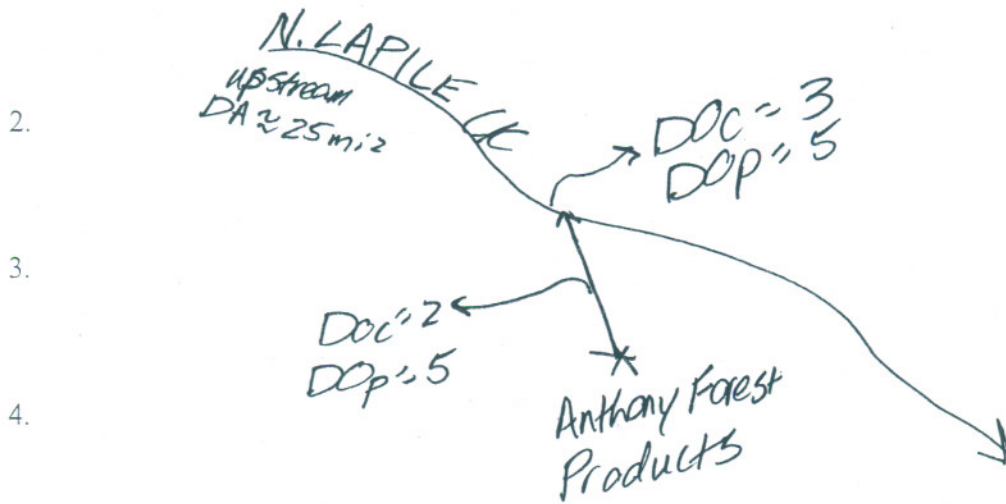 N. LAPILE CK
upstream
DA ≈ 25 mi2
2.
DOc = 3
DOp = 5
3.
DOc = 2
DOp = 5
4.
Anthony Forest
Products